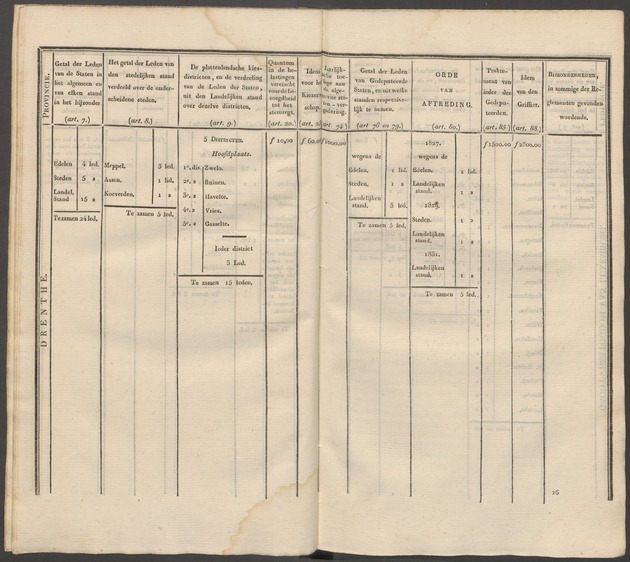 PROVINCIE.
Getal der Leden
van de Staten in
het algemeen en
van elken stand
in het bijzonder.
(art. 7.)
Edelen 4 led.
Steden 5 »
Landel.
Stand 15 »
Te zamen 24 led.
DRENTHE.
Het getal der Leden van
den stedelijken stand
verdeeld over de onder-
scheidene steden.
(art. 8.)
Meppel. 3 led.
Assen. 1 lid.
Koeverden. 1 »
Te zamen 5 led.
De plattenlandsche kies-
districten, en de verdeeling
van de Leden der Staten,
uit den Landelijken stand
over dezelve districten.
(art. 9.)
5 DISTRICTEN.
Hoofdplaats.
1e. dis. Zwelo.
2e. » Ruinen.
3e. » Havelte.
4e. » Vries.
5e. » Gasselte.
Ieder district
3 Led.
Te zamen 15 leden.
Quantum
in de be-
lastingen
vereischt
voor de be-
voegdheid
tot het
stemregt.
(art. 20.)
f 10,00
Idem
voor het
Kiezer-
schap.
f 60,00
(art. 74.)
f 1000,00
Getal der Leden
van Gedeputeerde
Staten, en uit welke
standen respective-
lijk te nemen.
(art 76 en 79.)
wegens de
Edelen. 1 lid.
Steden. 1 »
Landelijken
stand. 3 led.
Te zamen 5 led.
ORDE
VAN
AFTREDING.
(art. 80.)
1827.
wegens de
Edelen. 1 lid.
Landelijken
stand. 1 »
Steden. 1 »
Landelijken
stand. 1 »
1831.
Landelijken
stand. 1 »
Te zamen 5 led.
Trakte-
ment van
ieder der
Gedepu-
teerden.
(art. 85.)
f 1500,00
Idem
van den
Griffier.
(art. 88.)
f 2800,00
BIJZONDERHEDEN,
in sommige der Re-
glementen gevonden
wordende.
26